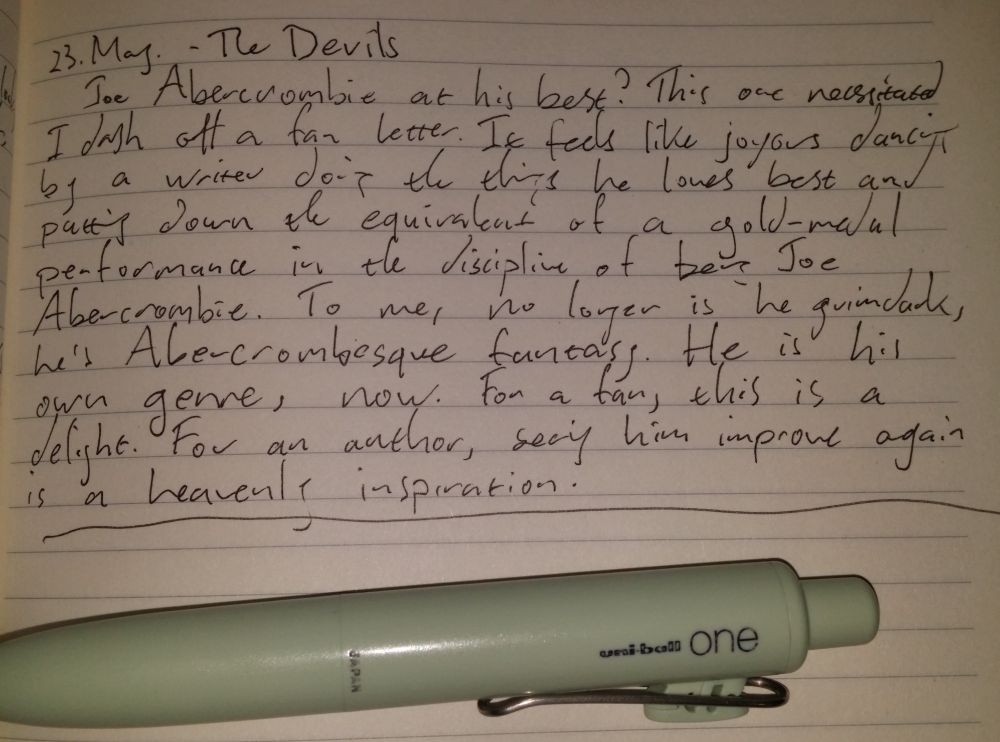 23. May. - The Devils
Joe Abercrombie at his best? This one necessitated
I dash off a fan letter. It feels like joyous dancing
by a writer doing the things he loves best and
putting down the equivalent of a gold-medal
performance in the discipline of being Joe
Abercrombie. To me, no longer is he grimdark,
he's Abercrombiesque fantasy. He is his
own genre, now. For a fan, this is a
delight. For an author, seeing him improve again
is a heavenly inspiration.
uni-ball one
JAPAN